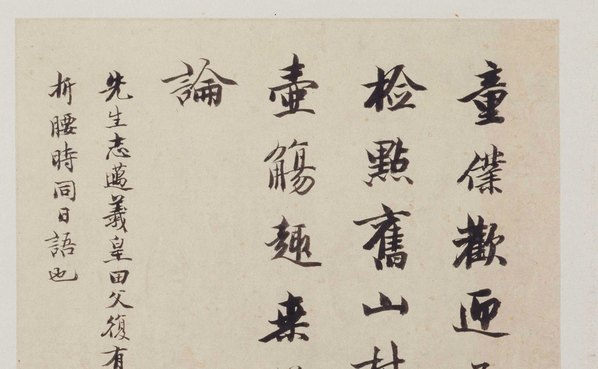 童僕歡迎
檢點舊山村
壺觴趣來
論
先生志邁羲皇田父復有
折腰時同日語也